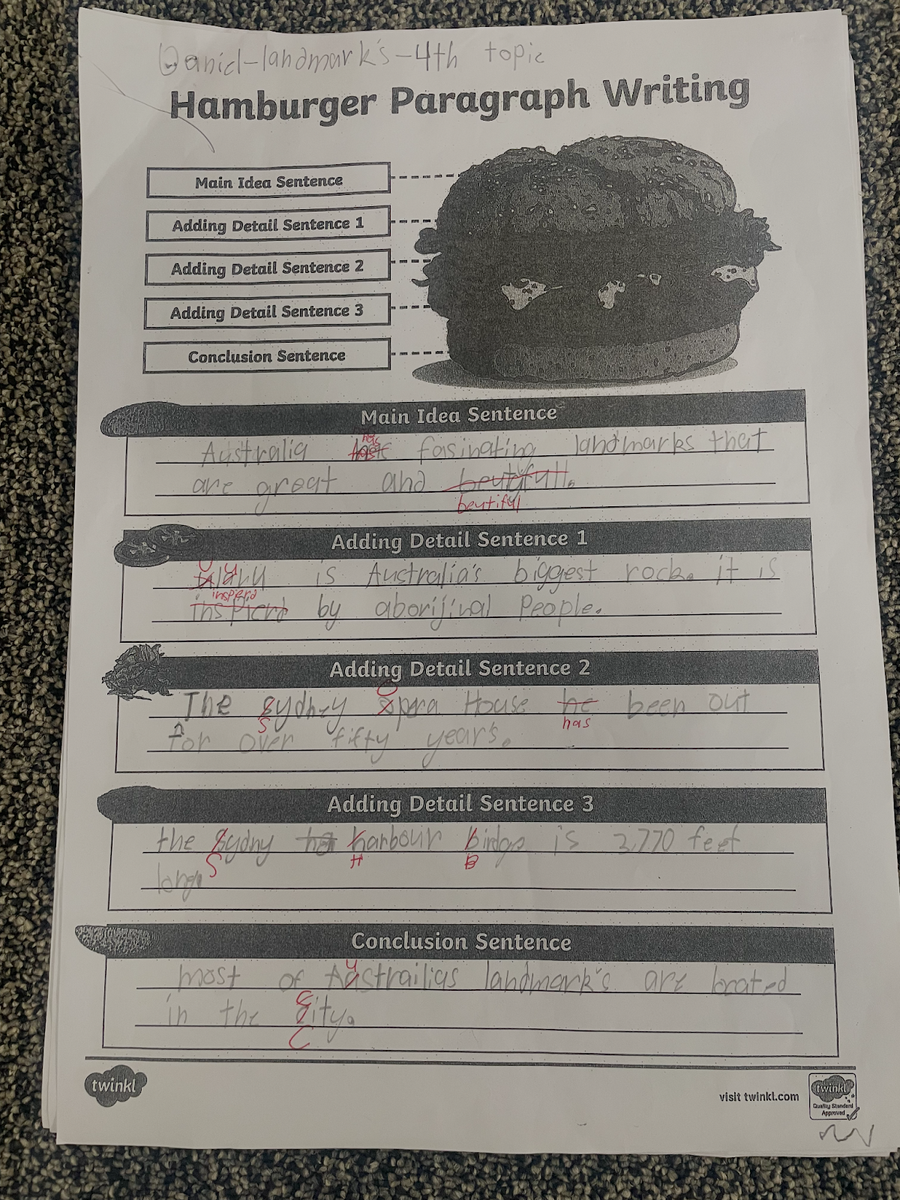 Daniel-landmark's-4th topic
Hamburger Paragraph Writing
Main Idea Sentence
Adding Detail Sentence 1
Adding Detail Sentence 2
Adding Detail Sentence 3
Conclusion Sentence
Main Idea Sentence
has
Australia fasinating landmarks that
are great and beutifull.
beutiful
Adding Detail Sentence 1
is Australia's biggest rock. it is
inspierd
inspierd by aborijinal People.
Adding Detail Sentence 2
The sydney opra House he been out
S O has
for over fifty years.
Adding Detail Sentence 3
the sydny harbour birdge is 3,770 feet
S H B
long
Conclusion Sentence
most of Austrailias landmark's are loated
in the city.
C
twinkl
visit twinkl.com
twinkl
Quality Standard
Approved